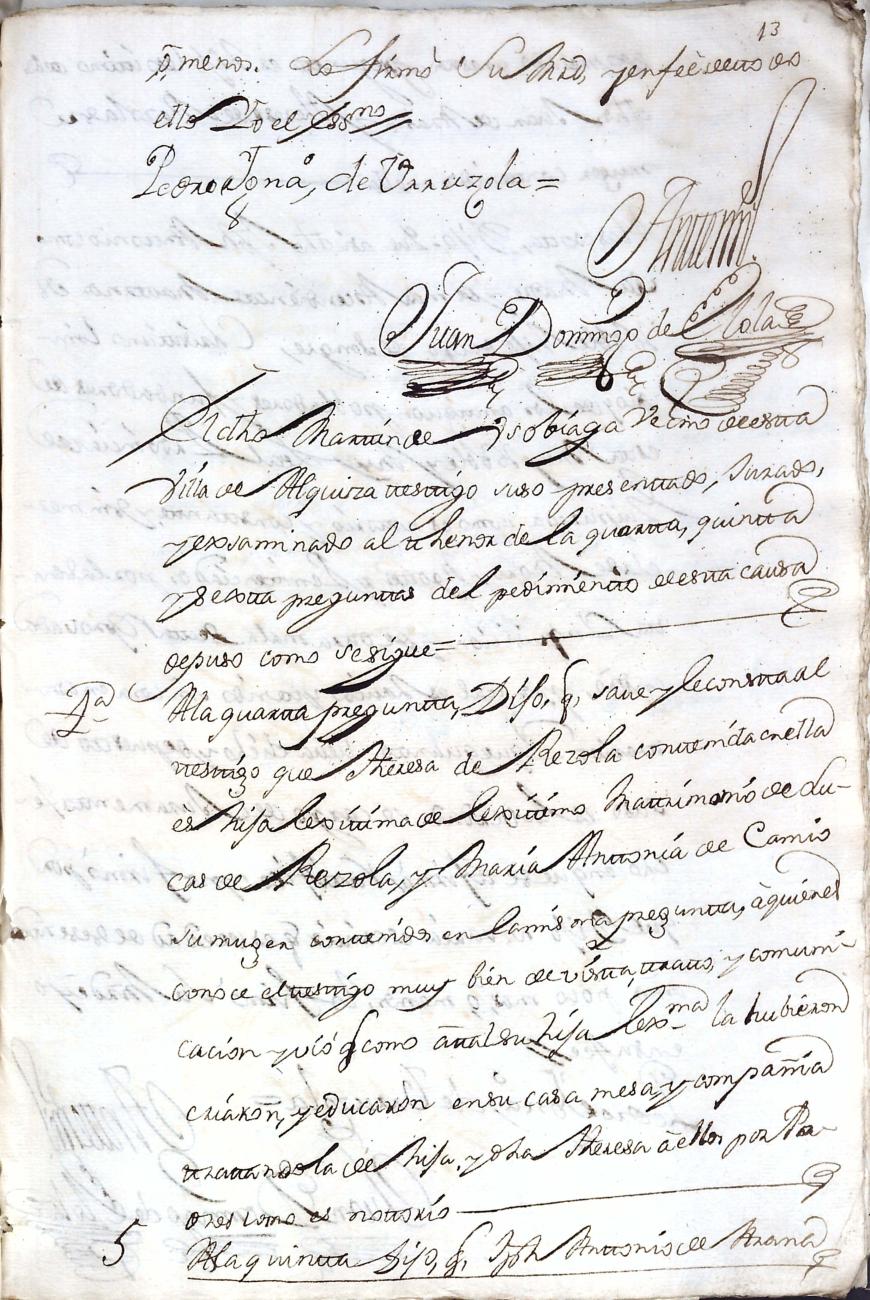 13
o menos. Lo firmó Su Mrd, y en fee de todo
ello Yo el Essno
Pedro Igna, de Urruzola =
Antemi
Juan Domingo de Olola
El dho Martin de Ysobiaga Vecino de esta
Villa de Alquiza testigo suso presentado, Jurado,
y exsaminado al thenor de la quarta, quinta
y sexta preguntas del pedimento de esta causa
depuso como se sigue =
4a
Ala quarta pregunta, Dijo, q, save y le consta al
testigo que Theresa de Rezola contenida en ella
es hija lexitima de lexitimo Matrimonio de Lu-
cas de Rezola, y Maria Antonia de Camio
su muger contenidos en la misma pregunta, à quienes
conoce el testigo muy bien de vista, trato, y comuni-
cacion y vió q como a tal su hija lexma la hubieron
criaron, y educaron en su casa mesa, y compañia
tratandola de hija, y dha Theresa à ellos por Pa-
dres como es nottorio
5
Ala quinta Dijo, q, Jph Antonio de Arana